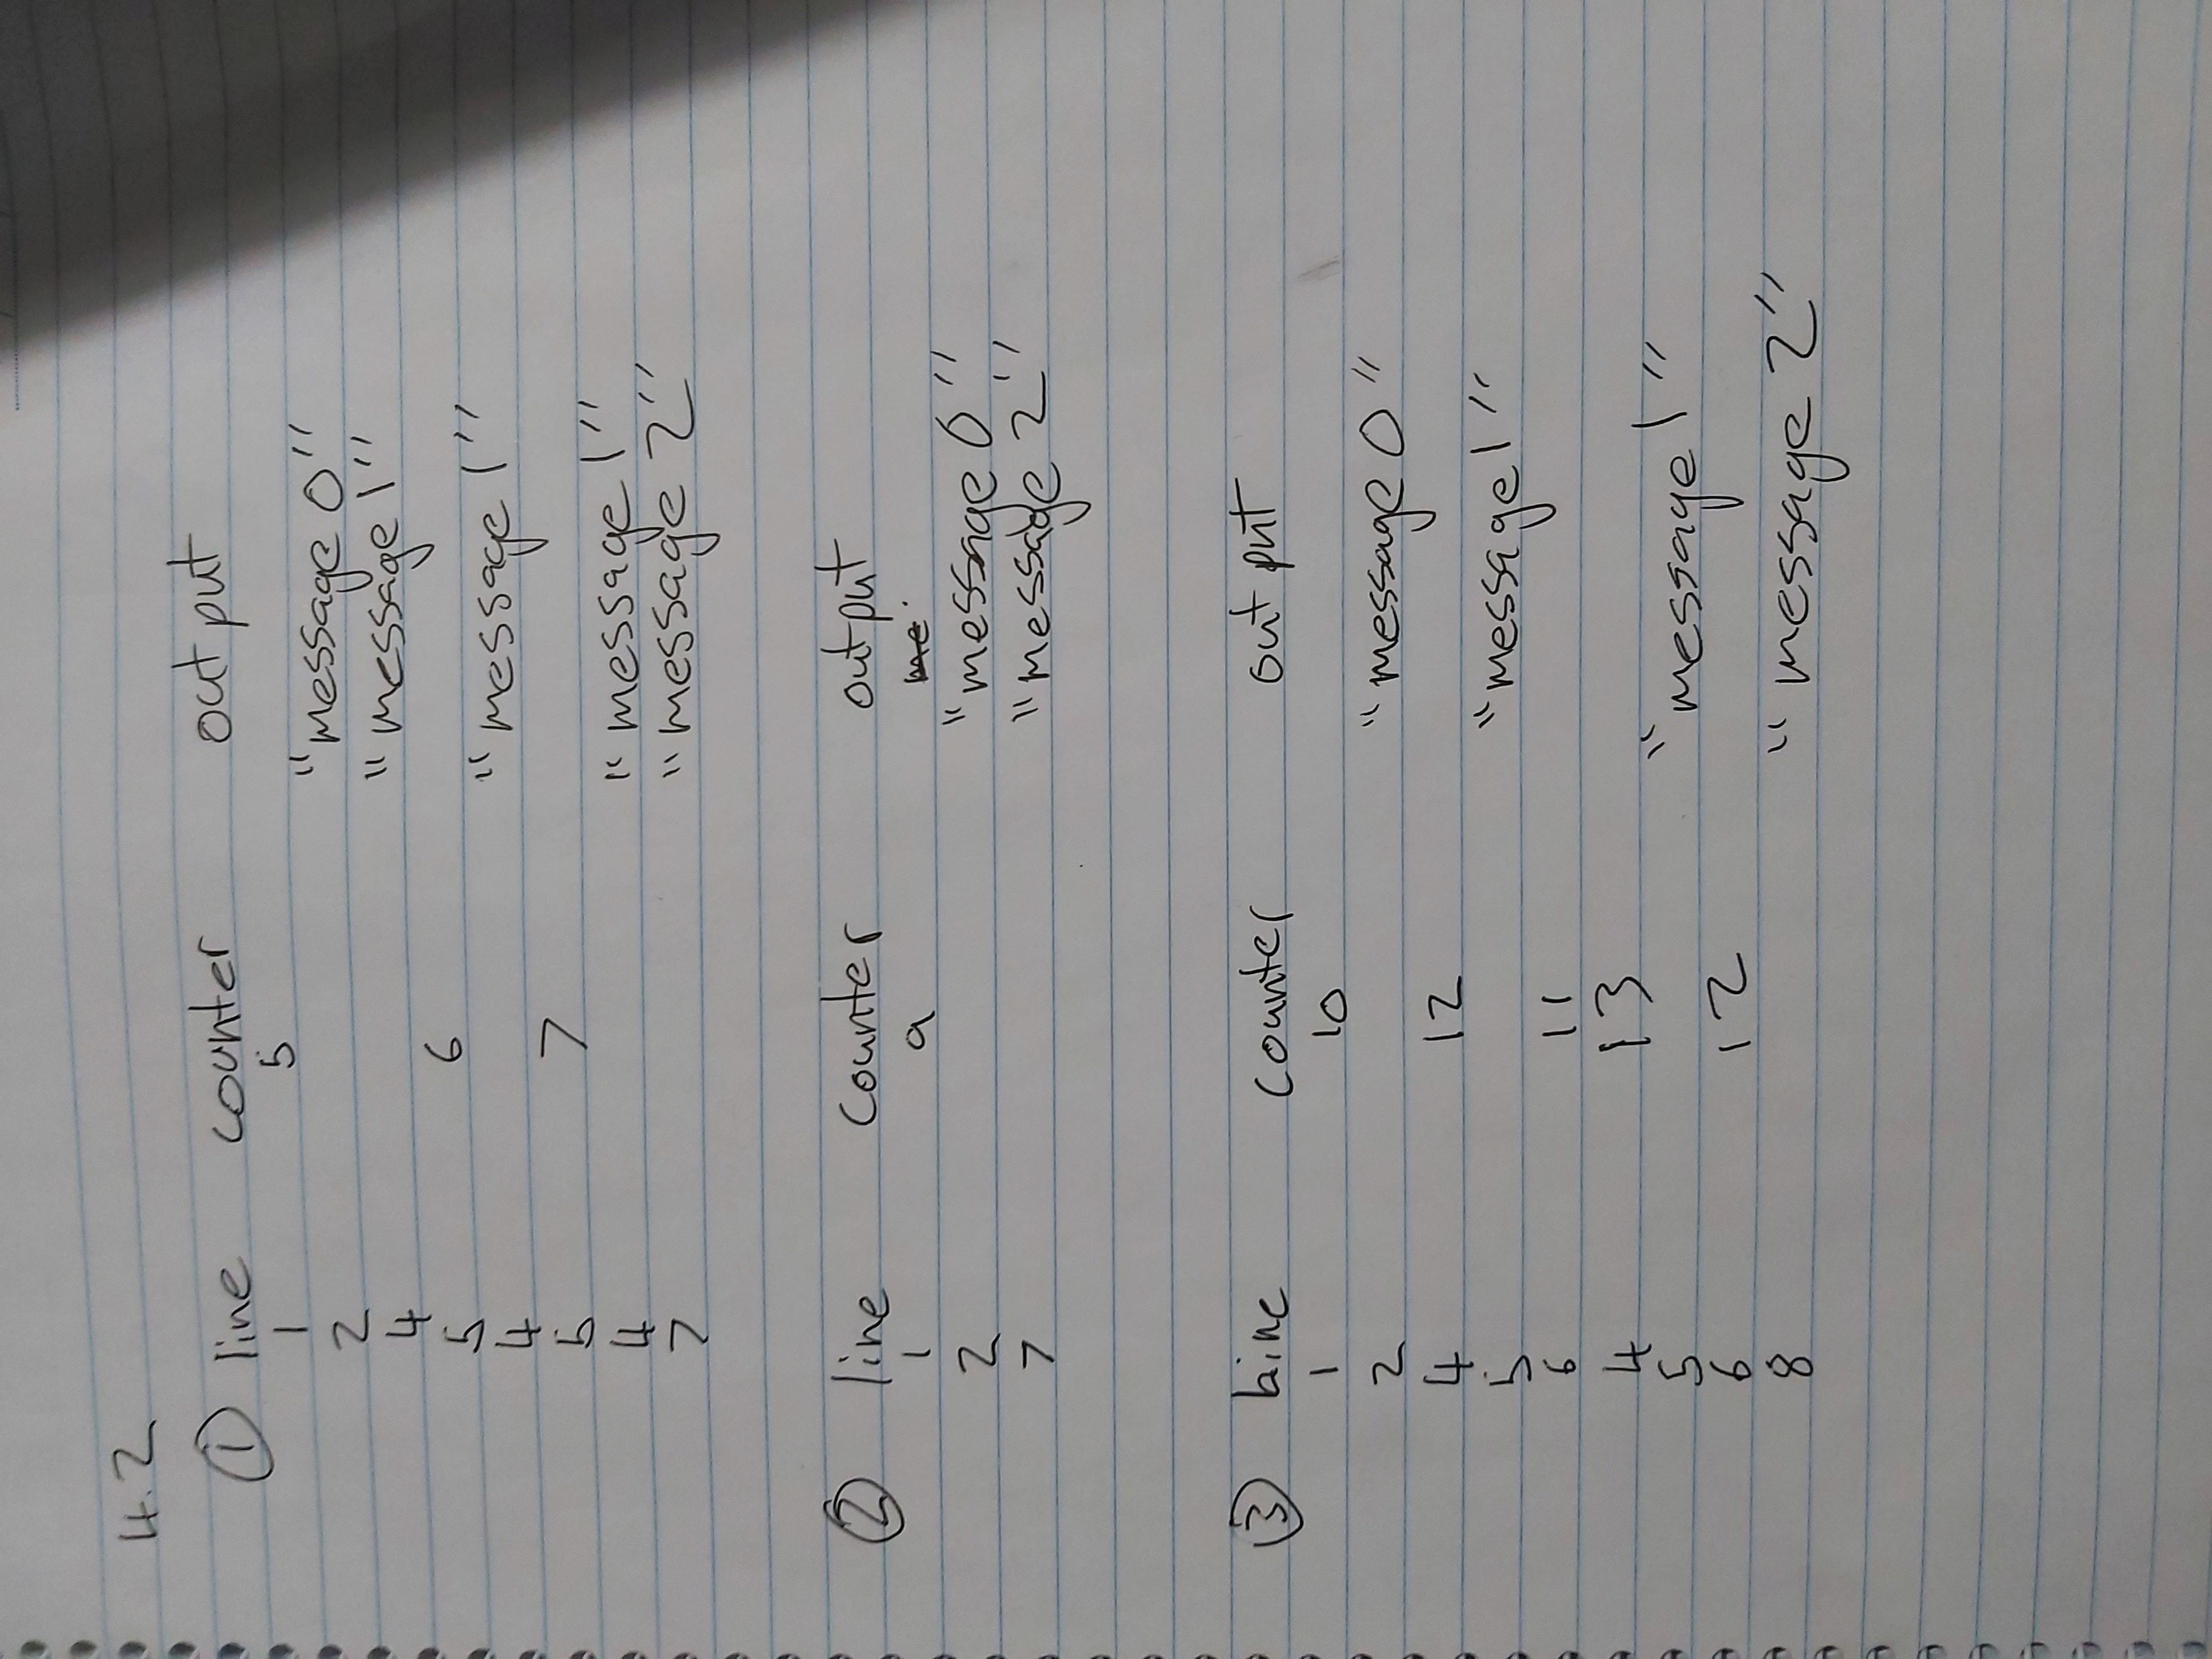 4.2
① line counter output
1 5
2 "message 0"
4 "message 1"
5 6
4 "message 1"
5 7
4 "message 1"
7 "message 2"
② line counter output
1 9 me
2 "message 0"
7 "message 2"
③ line counter output
1 10
2 "message 0"
4 12
5 "message 1"
6 11
4 13
5 "message 1"
6 12
8 "message 2"